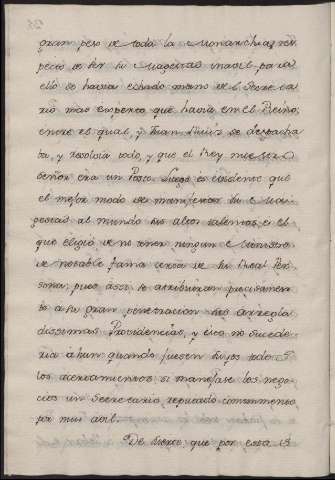 gran peso de toda la Monarchia, res
pecto de ser su Magestad inavil para
ello se havia echado mano de el Secreta
rio mas experto que havia en el Reino,
entre el qual, y Juan Ruiz se despacha
ba, y resolvia todo, y que el Rey nuestro
Señor era un Poste. Luego es evidente que
el mejor modo de manifestar su Ma
gestad al mundo sus altos talentos es el
que eligio de no tener ningun Ministro
de notable fama cerca de su Real Per
sona, pues assi se atribuiran precisamen
te a su gran penetracion sus arregla
dissimas Providencias, y esto no sucede
ria aun quando fuesen suyos todos
los acertamientos si manejase los nego
cios un Secretario reputado comunmente
por mas avil.
De suerte que por esta